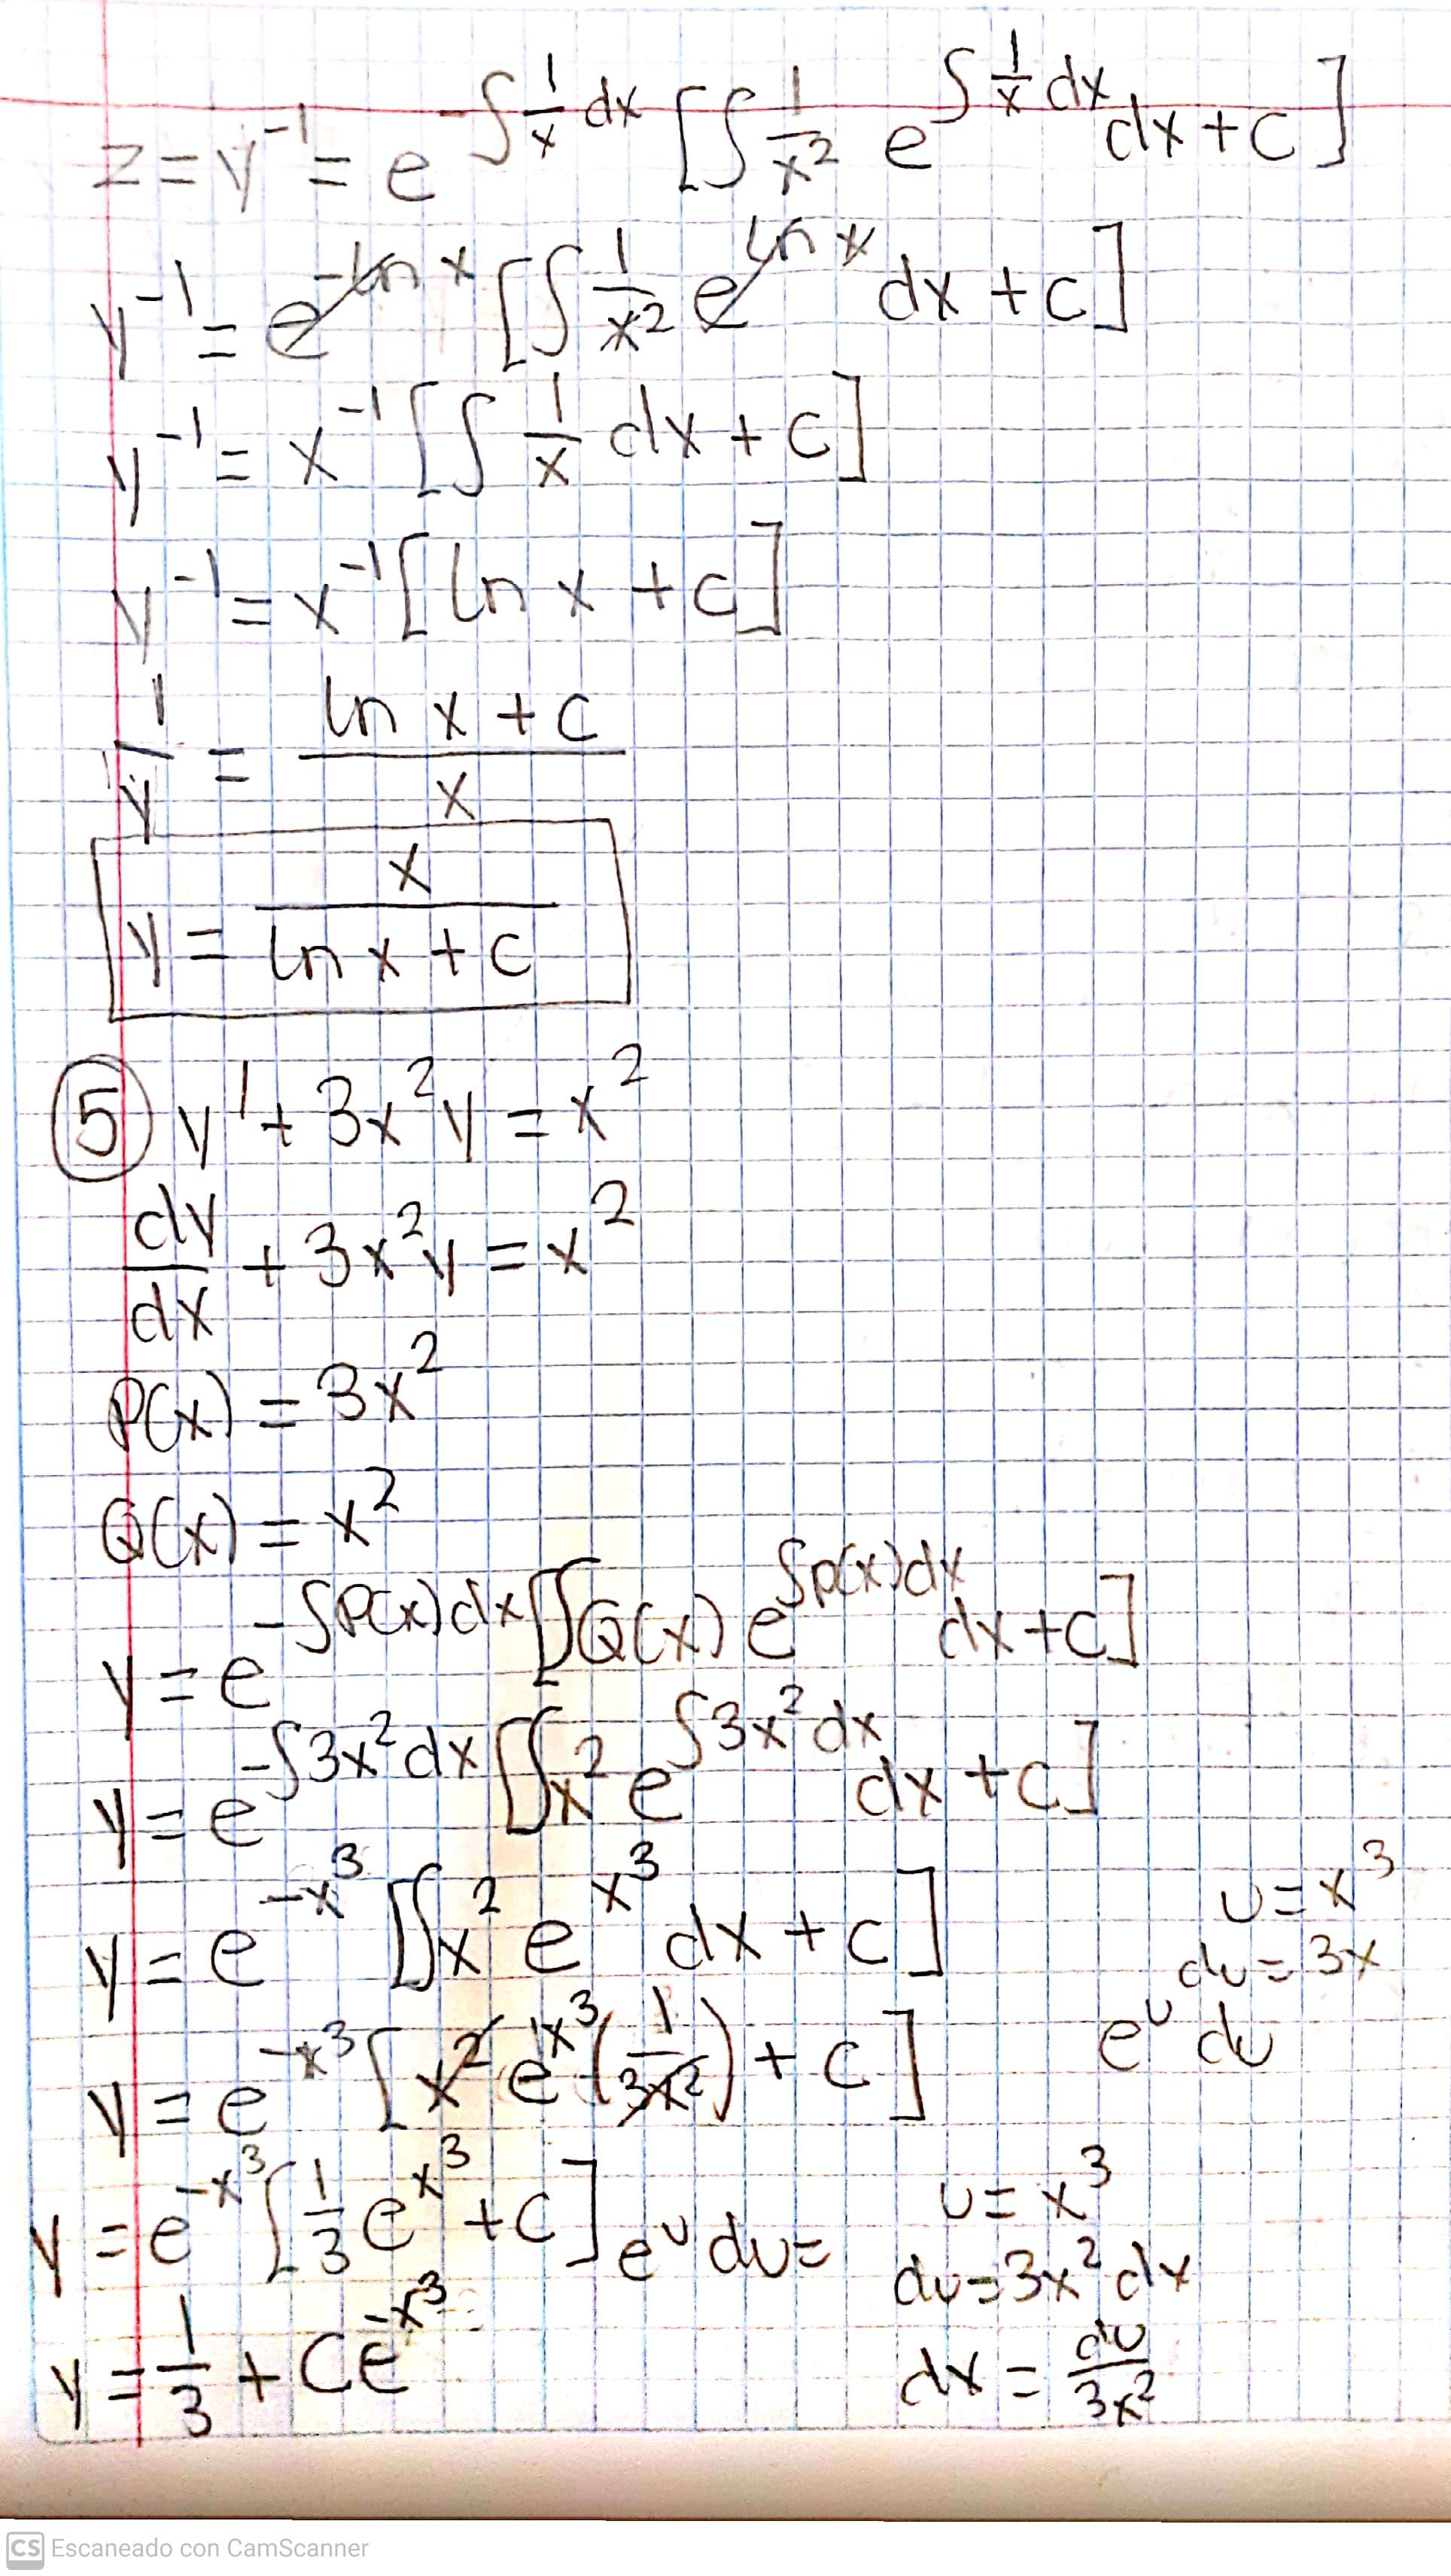 z = y⁻¹ = e^(-∫ 1/x dx) [∫ 1/x² e^(∫ 1/x dx) dx + c]
y⁻¹ = e^(-ln x) [∫ 1/x² e^(ln x) dx + c]
y⁻¹ = x⁻¹ [∫ 1/x dx + c]
y⁻¹ = x⁻¹ [ln x + c]
1/y = (ln x + c)/x
y = x/(ln x + c)
5 y' + 3x²y = x²
dy/dx + 3x²y = x²
P(x) = 3x²
Q(x) = x²
y = e^(-∫P(x)dx) [∫Q(x) e^(∫p(x)dx) dx + c]
y = e^(-∫3x²dx) [∫x² e^(∫3x²dx) dx + c]
y = e^(-x³) [∫x² e^(x³) dx + c]
u = x³
du = 3x
y = e^(-x³) [x² e^(x³) (1/3x²) + c]
e^u du
y = e^(-x³) [1/3 e^(x³) + c]
e^u du =
u = x³
du = 3x² dx
dx = du/3x²
y = 1/3 + Ce^(-x³)
CS Escaneado con CamScanner